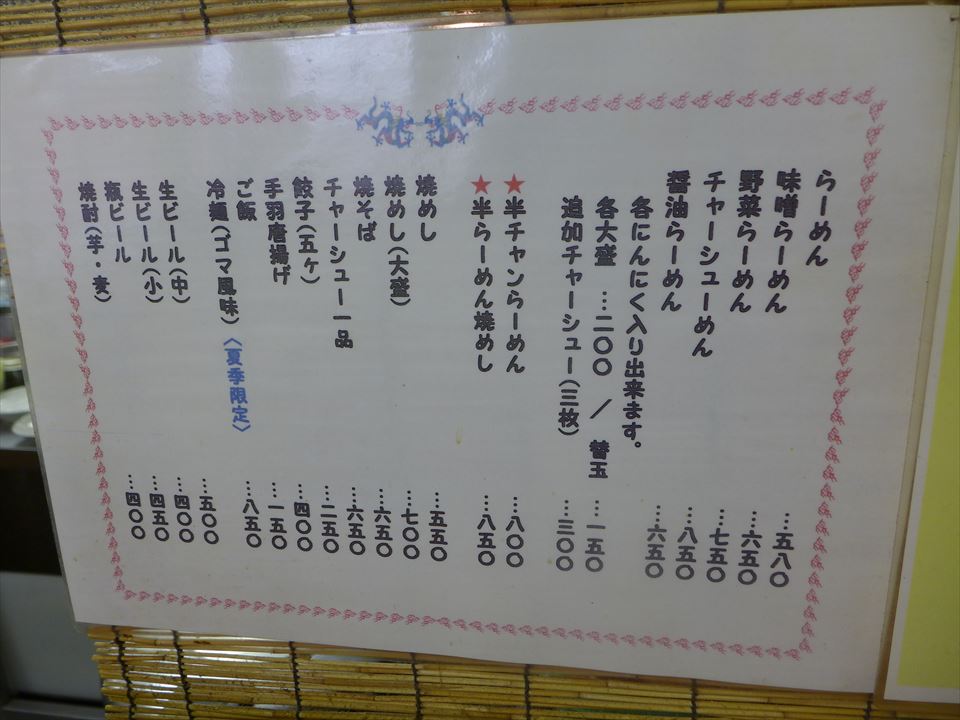 らーめん …五八〇
味噌らーめん …六五〇
野菜らーめん …七五〇
チャーシューめん …八五〇
醤油らーめん …六五〇
各にんにく入り出来ます。
各大盛 …二〇〇 / 替玉 …一五〇
追加チャーシュー(三枚) …三〇〇
★半チャンらーめん …八〇〇
★半らーめん焼めし …八五〇
焼めし …五五〇
焼めし(大盛) …七〇〇
焼そば …六五〇
チャーシュー一品 …六五〇
餃子(五ヶ) …二五〇
手羽唐揚げ …四〇〇
ご飯 …一五〇
冷麺(ゴマ風味)〈夏季限定〉 …八五〇
生ビール(中) …五〇〇
生ビール(小) …四〇〇
瓶ビール …四五〇
焼酎(芋・麦) …四〇〇